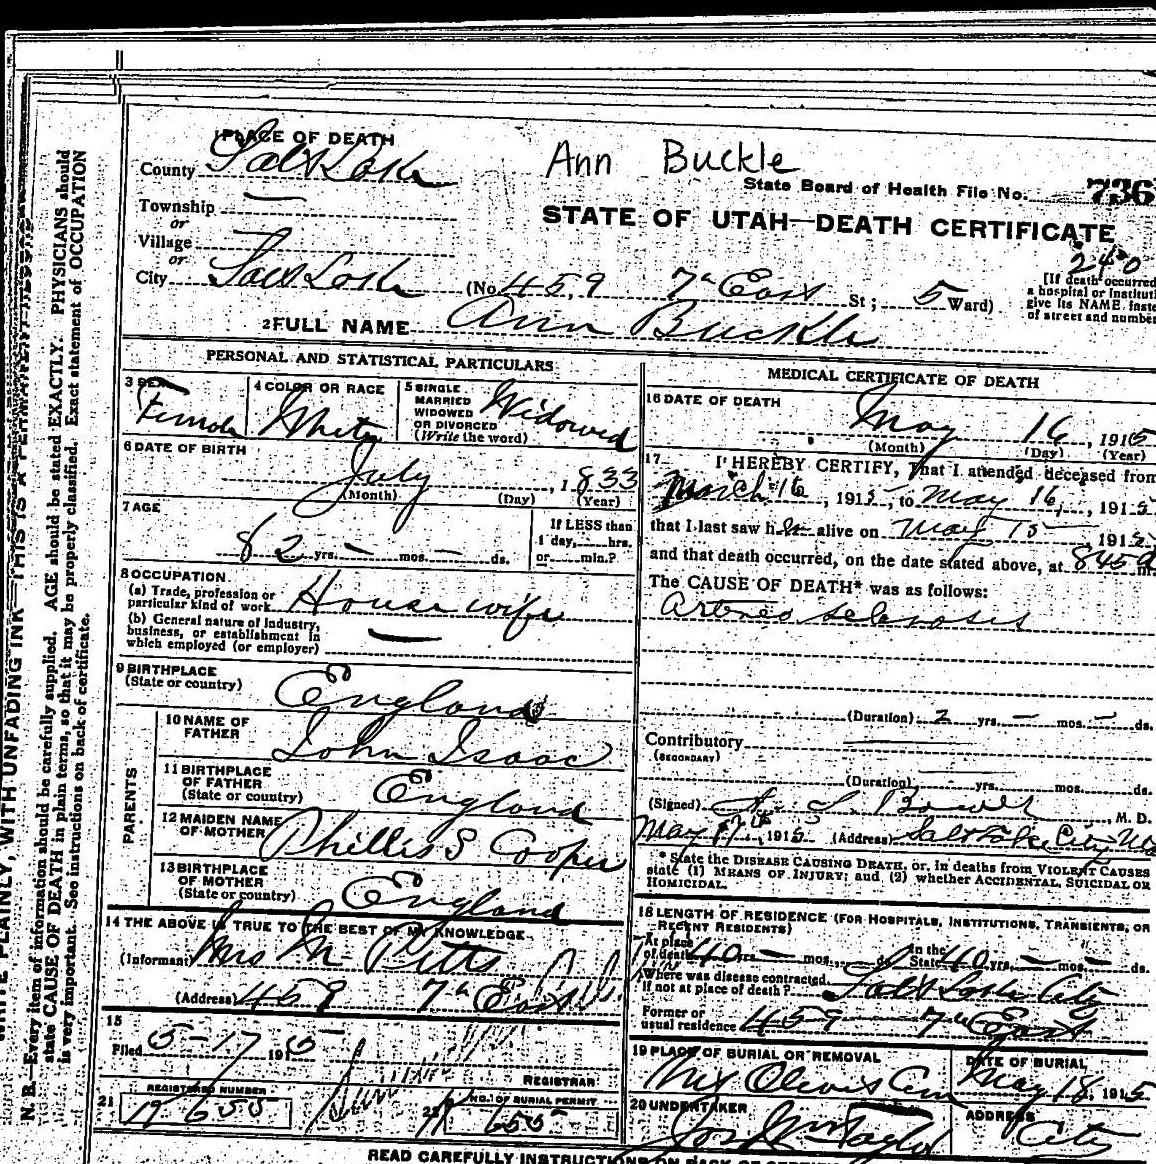 1 PLACE OF DEATH
Ann Buckle
County Salt Lake
State Board of Health File No. 736
Township —
or
STATE OF UTAH—DEATH CERTIFICATE
Village
or
240
City Salt Lake (No. 459 7th East St; 5 Ward)
[If death occurred
a hospital or instituti
give its NAME inste
of street and number
2 FULL NAME Ann Buckle
PERSONAL AND STATISTICAL PARTICULARS
3 SEX
Female
4 COLOR OR RACE
White
5 SINGLE
MARRIED
WIDOWED
OR DIVORCED
(Write the word)
Widowed
6 DATE OF BIRTH
July , 1833
(Month) (Day) (Year)
7 AGE
82 yrs. — mos. — ds.
If LESS than
1 day, hrs.
or min.?
8 OCCUPATION
(a) Trade, profession or
particular kind of work House wife
(b) General nature of industry,
business, or establishment in
which employed (or employer) —
9 BIRTHPLACE
(State or country) England
PARENTS
10 NAME OF
FATHER John Isaac
11 BIRTHPLACE
OF FATHER
(State or country) England
12 MAIDEN NAME
OF MOTHER Phillis S Cooper
13 BIRTHPLACE
OF MOTHER
(State or country) England
14 THE ABOVE IS TRUE TO THE BEST OF MY KNOWLEDGE
(Informant) Mrs M Pitts
(Address) 459 7th East
15
Filed 5-17 1915
REGISTRAR
21 REGISTERED NUMBER
655
22 NO. OF BURIAL PERMIT
655
MEDICAL CERTIFICATE OF DEATH
16 DATE OF DEATH
May 16, 1915
(Month) (Day) (Year)
17 I HEREBY CERTIFY, That I attended deceased from
March 16, 1915, to May 16, 1915
that I last saw her alive on May 15 1915
and that death occurred, on the date stated above, at 845a m.
The CAUSE OF DEATH* was as follows:
Arterio sclerosis
(Duration) 2 yrs. — mos. — ds.
Contributory —
(SECONDARY)
(Duration) yrs. mos. ds.
(Signed) Bower, M. D.
May 17th, 1915 (Address) Salt Lake City
* State the DISEASE CAUSING DEATH, or, in deaths from VIOLENT CAUSES
state (1) MEANS OF INJURY; and (2) whether ACCIDENTAL, SUICIDAL OR
HOMICIDAL.
18 LENGTH OF RESIDENCE (FOR HOSPITALS, INSTITUTIONS, TRANSIENTS, OR
RECENT RESIDENTS)
At place
of death 40 yrs. — mos. ds.
In the
State 40 yrs. — mos. — ds.
Where was disease contracted,
if not at place of death? Salt Lake City
Former or
usual residence 459 7th East
19 PLACE OF BURIAL OR REMOVAL
Mt Olivet Cem
DATE OF BURIAL
May 18, 1915
20 UNDERTAKER
Jos Wm Taylor
ADDRESS
City
READ CAREFULLY INSTRUCTIONS ON BACK OF
WRITE PLAINLY, WITH UNFADING INK—THIS IS A PERMANENT RECORD
N. B.—Every item of information should be carefully supplied. AGE should be stated EXACTLY. PHYSICIANS should
state CAUSE OF DEATH in plain terms, so that it may be properly classified. Exact statement of OCCUPATION
is very important. See instructions on back of certificate.